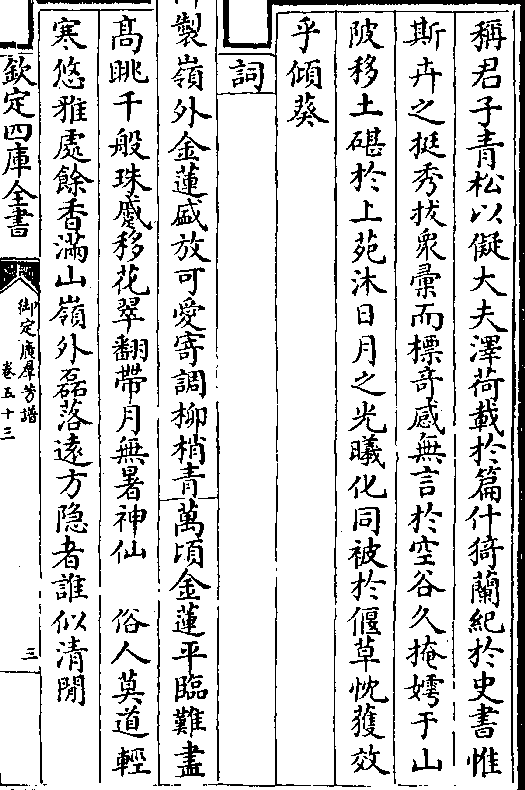 稱君子青松以儗大夫澤荷載於篇什猗蘭紀於史書惟
斯卉之挺秀拔衆彚而標竒感無言於空谷久掩嫮于山
陂移土碪於上苑沐日月之光曦化同被於偃草忱獲效
乎傾葵
詞
製嶺外金蓮盛放可愛寄調柳梢青 萬頃金蓮平臨難盡
髙眺千般珠蹙移花翠翻帶月無暑神仙 俗人莫道輕
寒悠雅處餘香滿山嶺外磊落遠方隐者誰似清閒
欽定四庫全書
御定廣羣芳譜
卷五十三
三